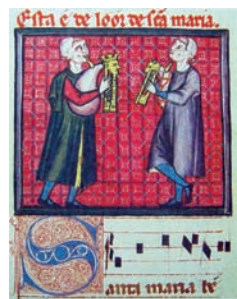 Esta é de loor de sc̃a maria.
Santa maria bẽ